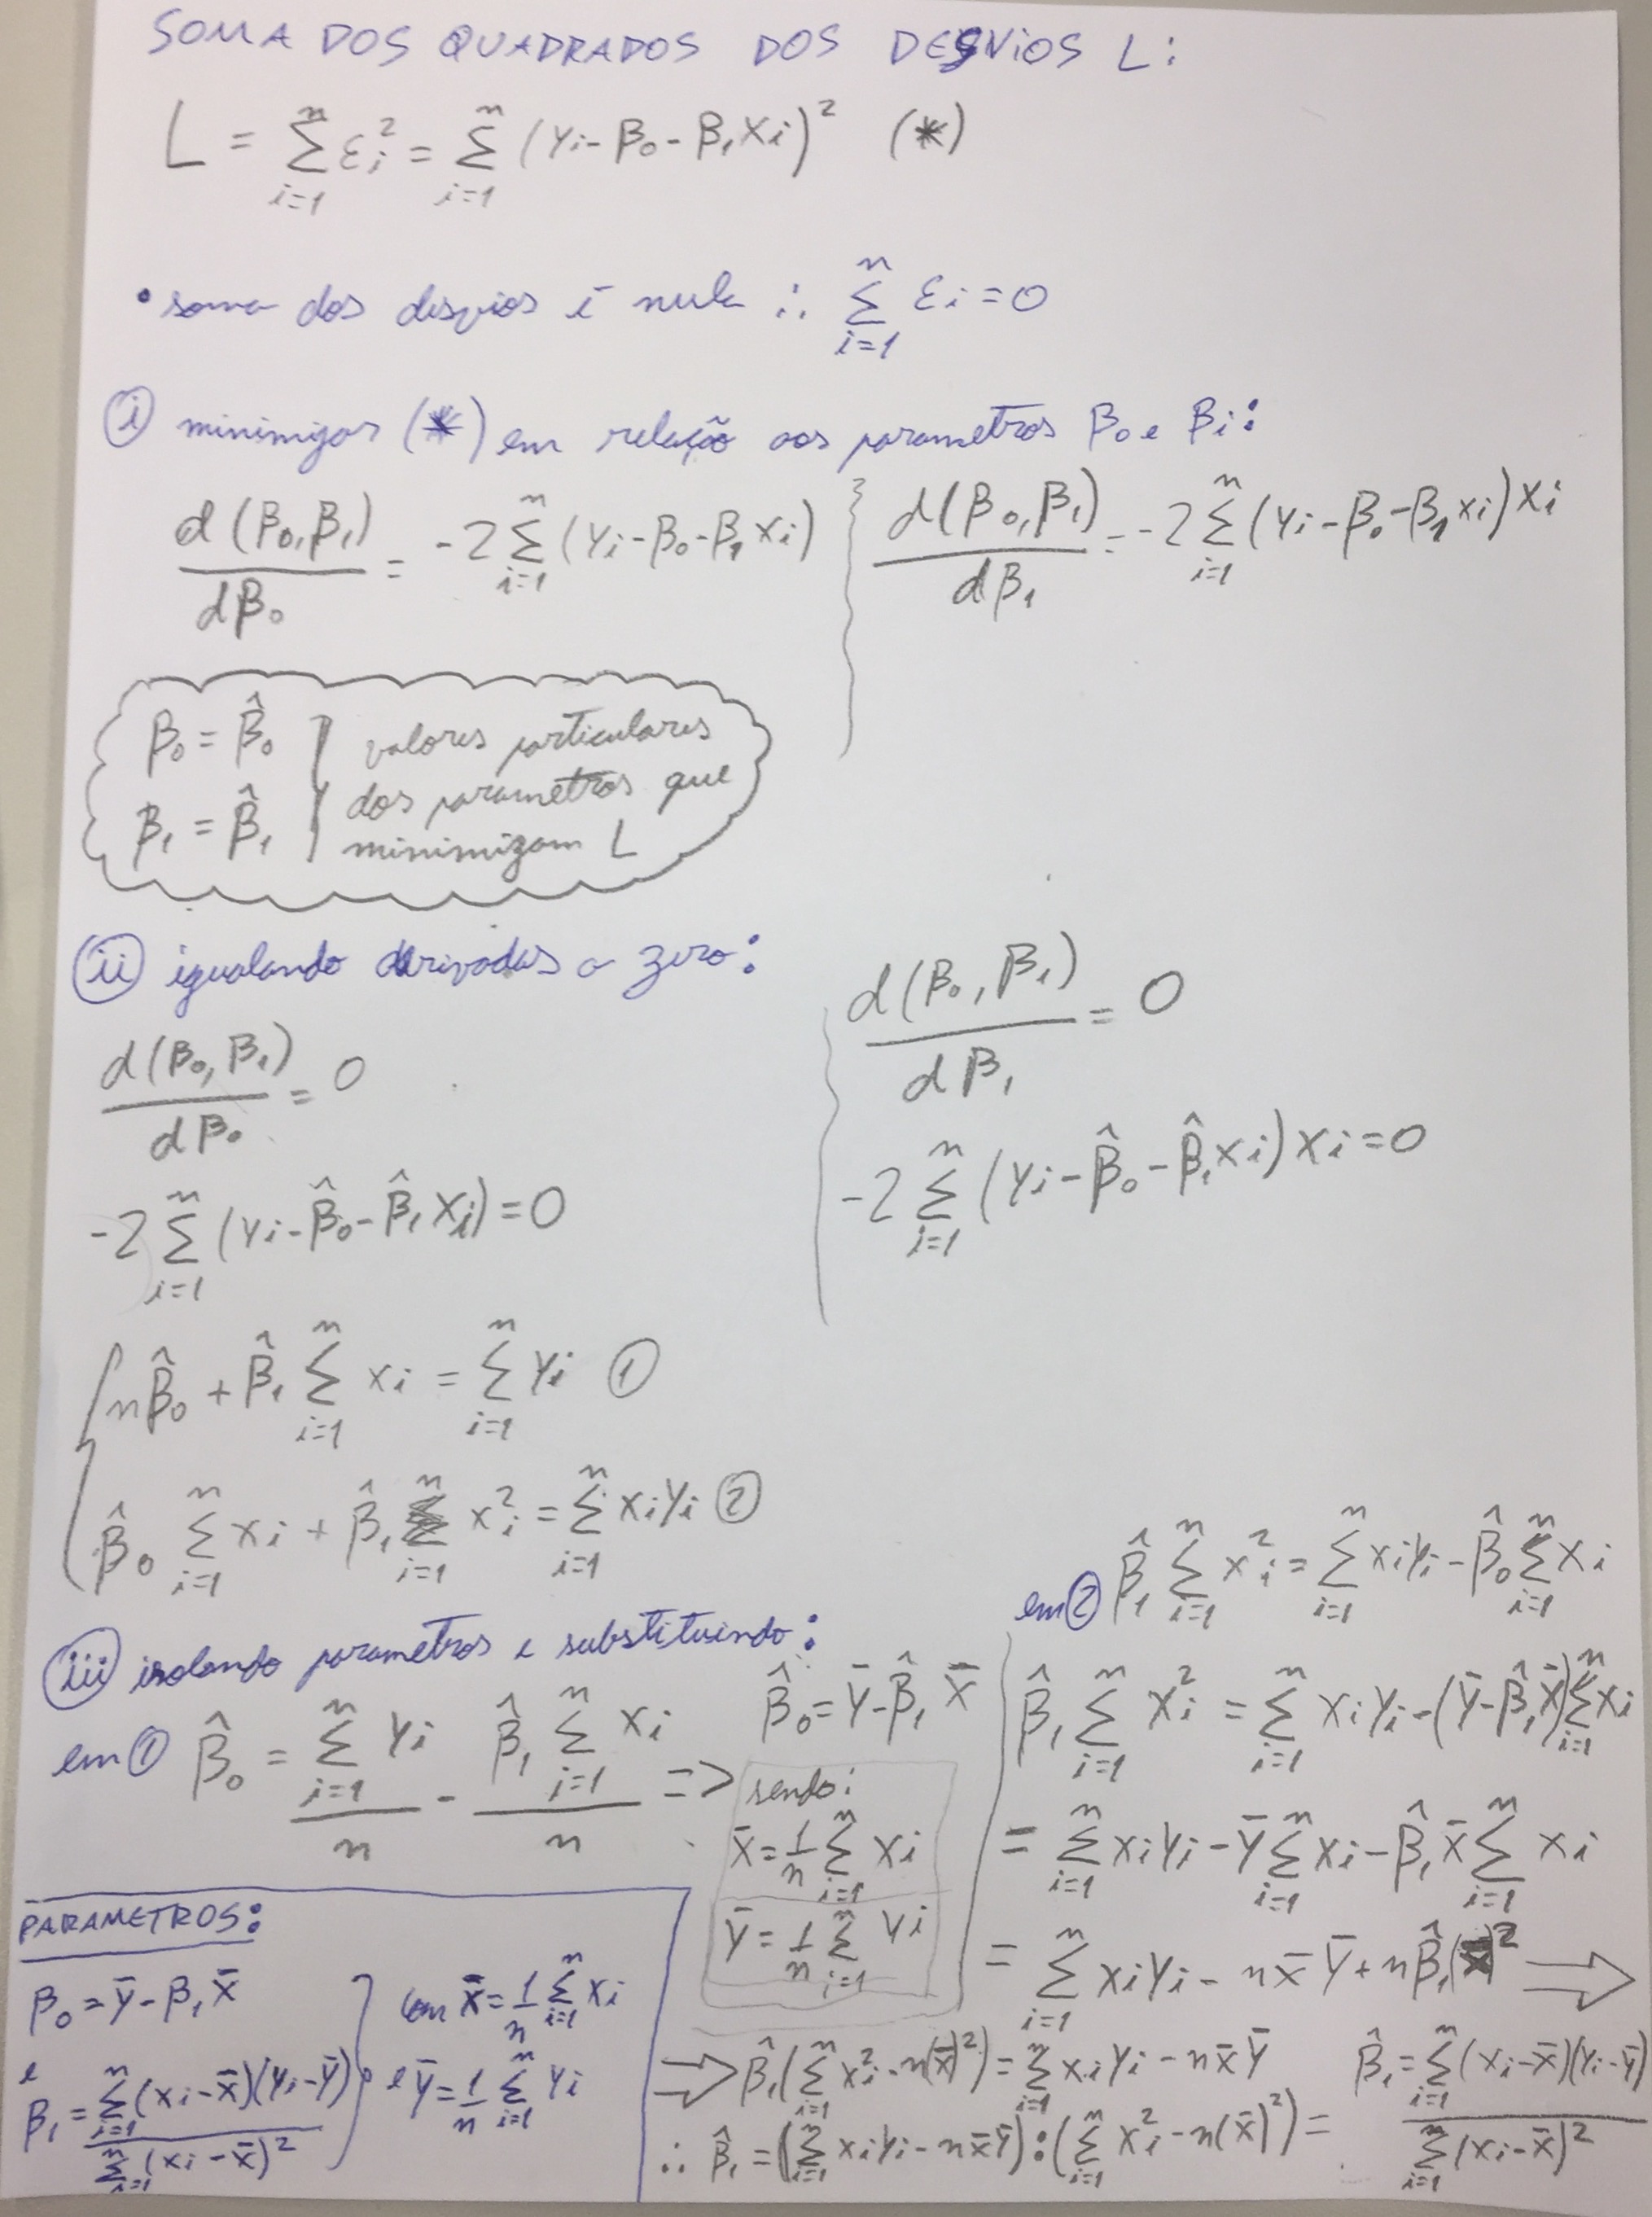 SOMA DOS QUADRADOS DOS DESVIOS L:
L = Σ_{i=1}^{n} ε_i^2 = Σ_{i=1}^{n} (Yi - β₀ - β₁Xi)² (*)
• soma dos desvios é nula ∴ Σ_{i=1}^{n} εi = 0
(i) minimizar (*) em relação aos parametros β₀ e βi:
d(β₀, β₁)/dβ₀ = -2 Σ_{i=1}^{n} (Yi - β₀ - β₁Xi)
d(β₀, β₁)/dβ₁ = -2 Σ_{i=1}^{n} (Yi - β₀ - β₁Xi) Xi
β₀ = β̂₀
β₁ = β̂₁
valores particulares
dos parametros que
minimizam L
(ii) igualando derivadas a zero:
d(β₀, β₁)/dβ₀ = 0
-2 Σ_{i=1}^{n} (Yi - β̂₀ - β̂₁Xi) = 0
d(β₀, β₁)/dβ₁ = 0
-2 Σ_{i=1}^{n} (Yi - β̂₀ - β̂₁Xi) Xi = 0
nβ̂₀ + β̂₁ Σ_{i=1}^{n} Xi = Σ_{i=1}^{n} Yi (1)
β̂₀ Σ_{i=1}^{n} Xi + β̂₁ Σ_{i=1}^{n} X_i^2 = Σ_{i=1}^{n} XiYi (2)
(iii) isolando parametros e substituindo:
em (1) β̂₀ = Σ_{i=1}^{n} Yi / n - β̂₁ Σ_{i=1}^{n} Xi / n =>
β̂₀ = Ȳ - β̂₁ X̄
sendo:
X̄ = 1/n Σ_{i=1}^{n} Xi
Ȳ = 1/n Σ_{i=1}^{n} Yi
em (2) β̂₁ Σ_{i=1}^{n} X_i^2 = Σ_{i=1}^{n} XiYi - β̂₀ Σ_{i=1}^{n} Xi
β̂₁ Σ_{i=1}^{n} X_i^2 = Σ_{i=1}^{n} XiYi - (Ȳ - β̂₁X̄) Σ_{i=1}^{n} Xi
= Σ_{i=1}^{n} XiYi - Ȳ Σ_{i=1}^{n} Xi - β̂₁X̄ Σ_{i=1}^{n} Xi
= Σ_{i=1}^{n} XiYi - nX̄Ȳ + nβ̂₁(X̄)² ⇒
⇒ β̂₁(Σ_{i=1}^{n} X_i^2 - n(X̄)²) = Σ_{i=1}^{n} XiYi - nX̄Ȳ
∴ β̂₁ = (Σ_{i=1}^{n} XiYi - nX̄Ȳ) : (Σ_{i=1}^{n} X_i^2 - n(X̄)²) =
β̂₁ = Σ_{i=1}^{n} (Xi - X̄)(Yi - Ȳ) / Σ_{i=1}^{n} (Xi - X̄)²
PARAMETROS:
β₀ = Ȳ - β₁X̄
e
β₁ = Σ_{i=1}^{n} (Xi - X̄)(Yi - Ȳ) / Σ_{i=1}^{n} (Xi - X̄)²
com X̄ = 1/n Σ_{i=1}^{n} Xi
e Ȳ = 1/n Σ_{i=1}^{n} Yi